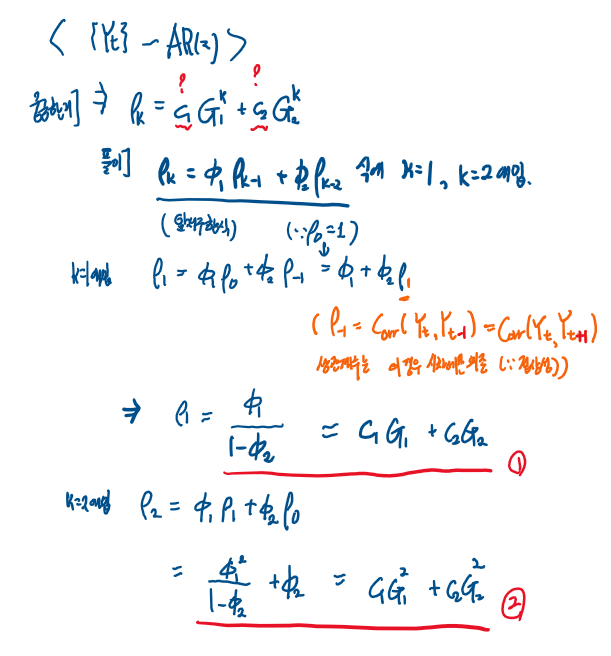 < {Yt} ~ AR(2) >
궁금한거] ⇒ ρk = C1 G1^k + C2 G2^k
? ?
풀이] ρk = ϕ1 ρk-1 + ϕ2 ρk-2 식에 k=1, k=2 대입.
(∵ρ0=1)
k=1 대입 ρ1 = ϕ1ρ0 + ϕ2 ρ-1 = ϕ1 + ϕ2 ρ1
( ρ-1 = Corr(Yt, Yt-1) = Corr(Yt, Yt+1)
상관계수는 이 경우 시차에만 의존 (∵ 정상성))
⇒ ρ1 = ϕ1/(1-ϕ2) = C1G1 + C2G2 ①
k=2 대입 ρ2 = ϕ1 ρ1 + ϕ2 ρ0
= ϕ1²/(1-ϕ2) + ϕ2 = C1G1² + C2G2² ②